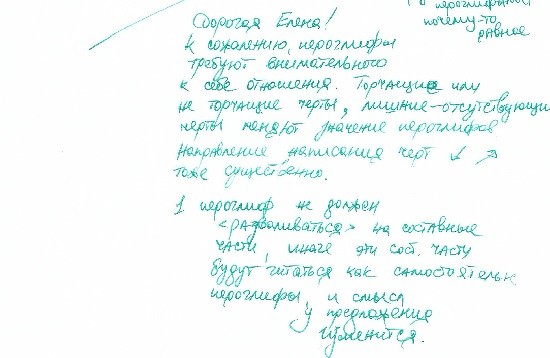 о иероглифах
почему-то
равное
Дорогая Елена!
К сожалению, иероглифы
требуют внимательного
к себе отношения. Торчащие или
не торчащие черты, лишние-отсутствующие
черты меняют значение иероглифов
Направление написания черт ↙ ↗
тоже существенно.
1 иероглиф не должен
<разваливаться> на составные
части, иначе эти сост. части
будут читаться как самостоятельн
иероглифы, и смысл
у предложения
изменится.